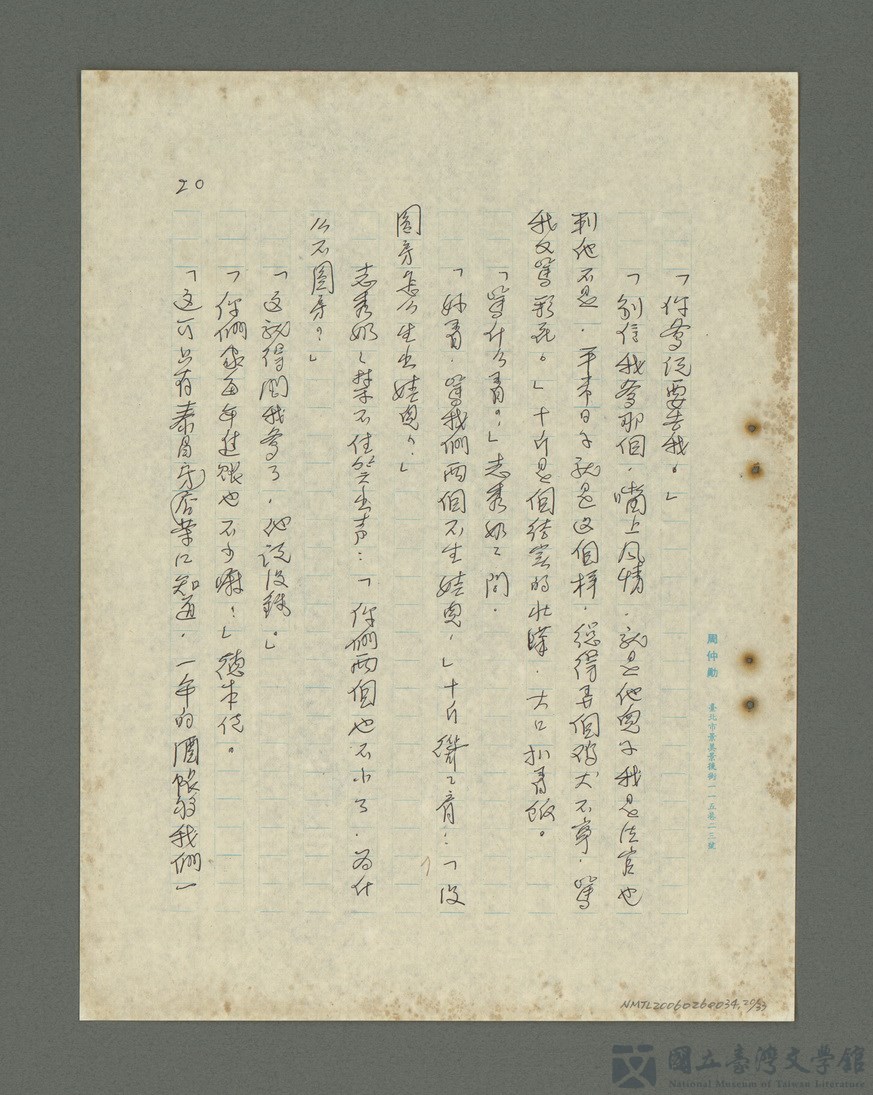 「你爹說要告我。」
「別信我爹那個，嘴上風情，就是他兒子我是法官也
判他不是，平常日子就是這個樣，總得弄個鸡犬不寧，罵
我又罵彩花。」十斤是個結實的壯漢，大口扒着飯。
「罵什么着？」志秀奶奶問。
「妙着，罵我們兩個不生娃兒，」十斤聲音：「沒
圓房怎么生出娃兒？」
志秀奶奶禁不住笑出声：「你們兩個也不小了，為什
么不圓房？」
「這就得問我爹了，他說沒錢。」
「你們家每年進賬也不少啊！」德本傍。
「這可只有泰昌号知道，一年的酒賬夠我們一
20
周仲勳
臺北市景美景後街一一五巷二三號
NMTL20060260034 20/33
國立臺灣文學館
National Museum of Taiwan Literature